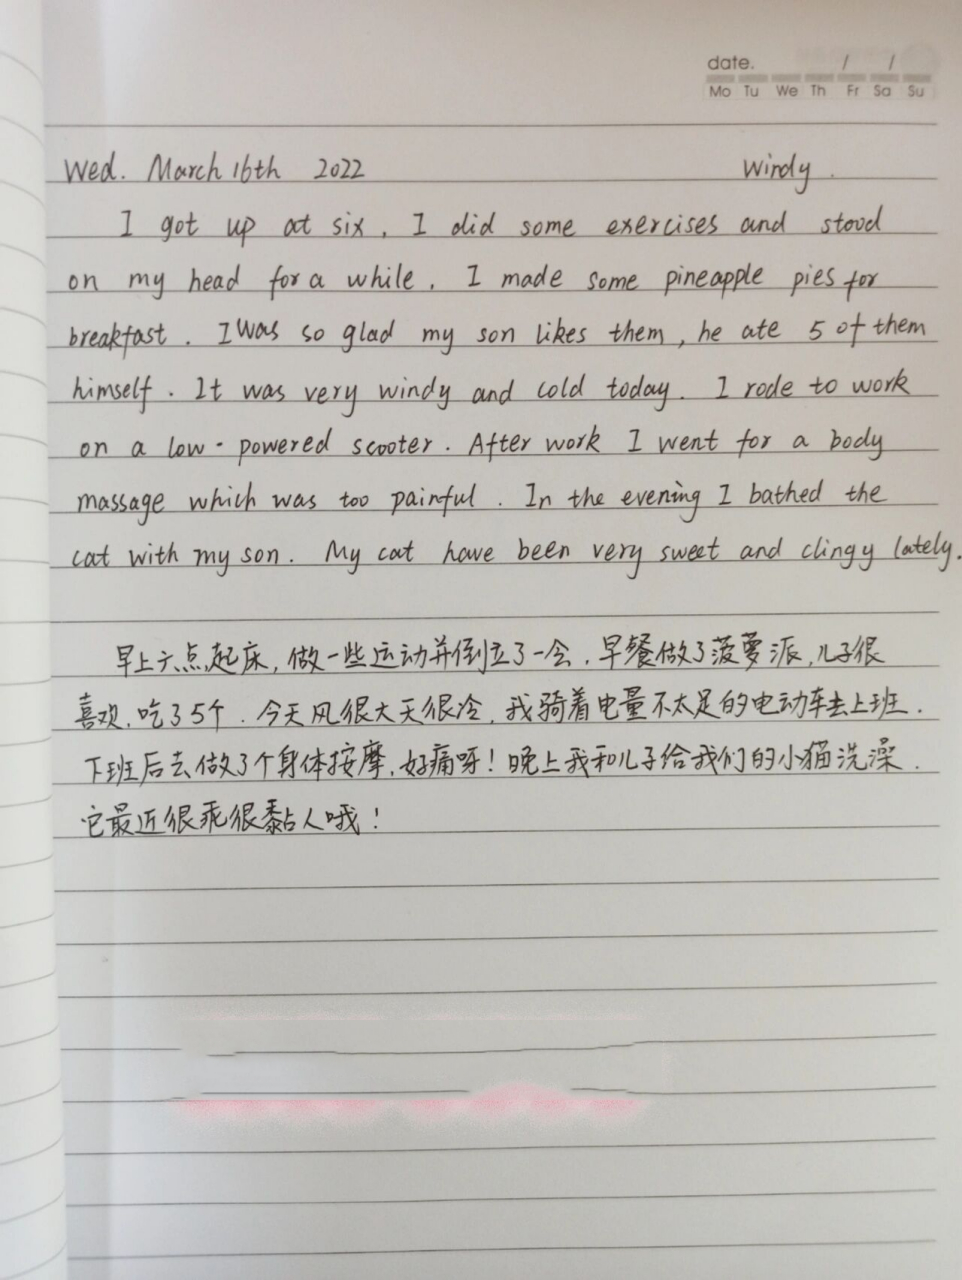 date. / /
Mo Tu We Th Fr Sa Su
Wed. March 16th 2022 Windy.
I got up at six, I did some exercises and stood
on my head for a while. I made some pineapple pies for
breakfast. I was so glad my son likes them, he ate 5 of them
himself. It was very windy and cold today. I rode to work
on a low-powered scooter. After work I went for a body
massage which was too painful. In the evening I bathed the
cat with my son. My cat have been very sweet and clingy lately.
早上六点起床,做一些运动并倒立了一会.早餐做了菠萝派,儿子很
喜欢,吃了5个.今天风很大天很冷,我骑着电量不太足的电动车去上班.
下班后去做了个身体按摩,好痛呀!晚上我和儿子给我们的小猫洗澡.
它最近很乖很黏人哦!